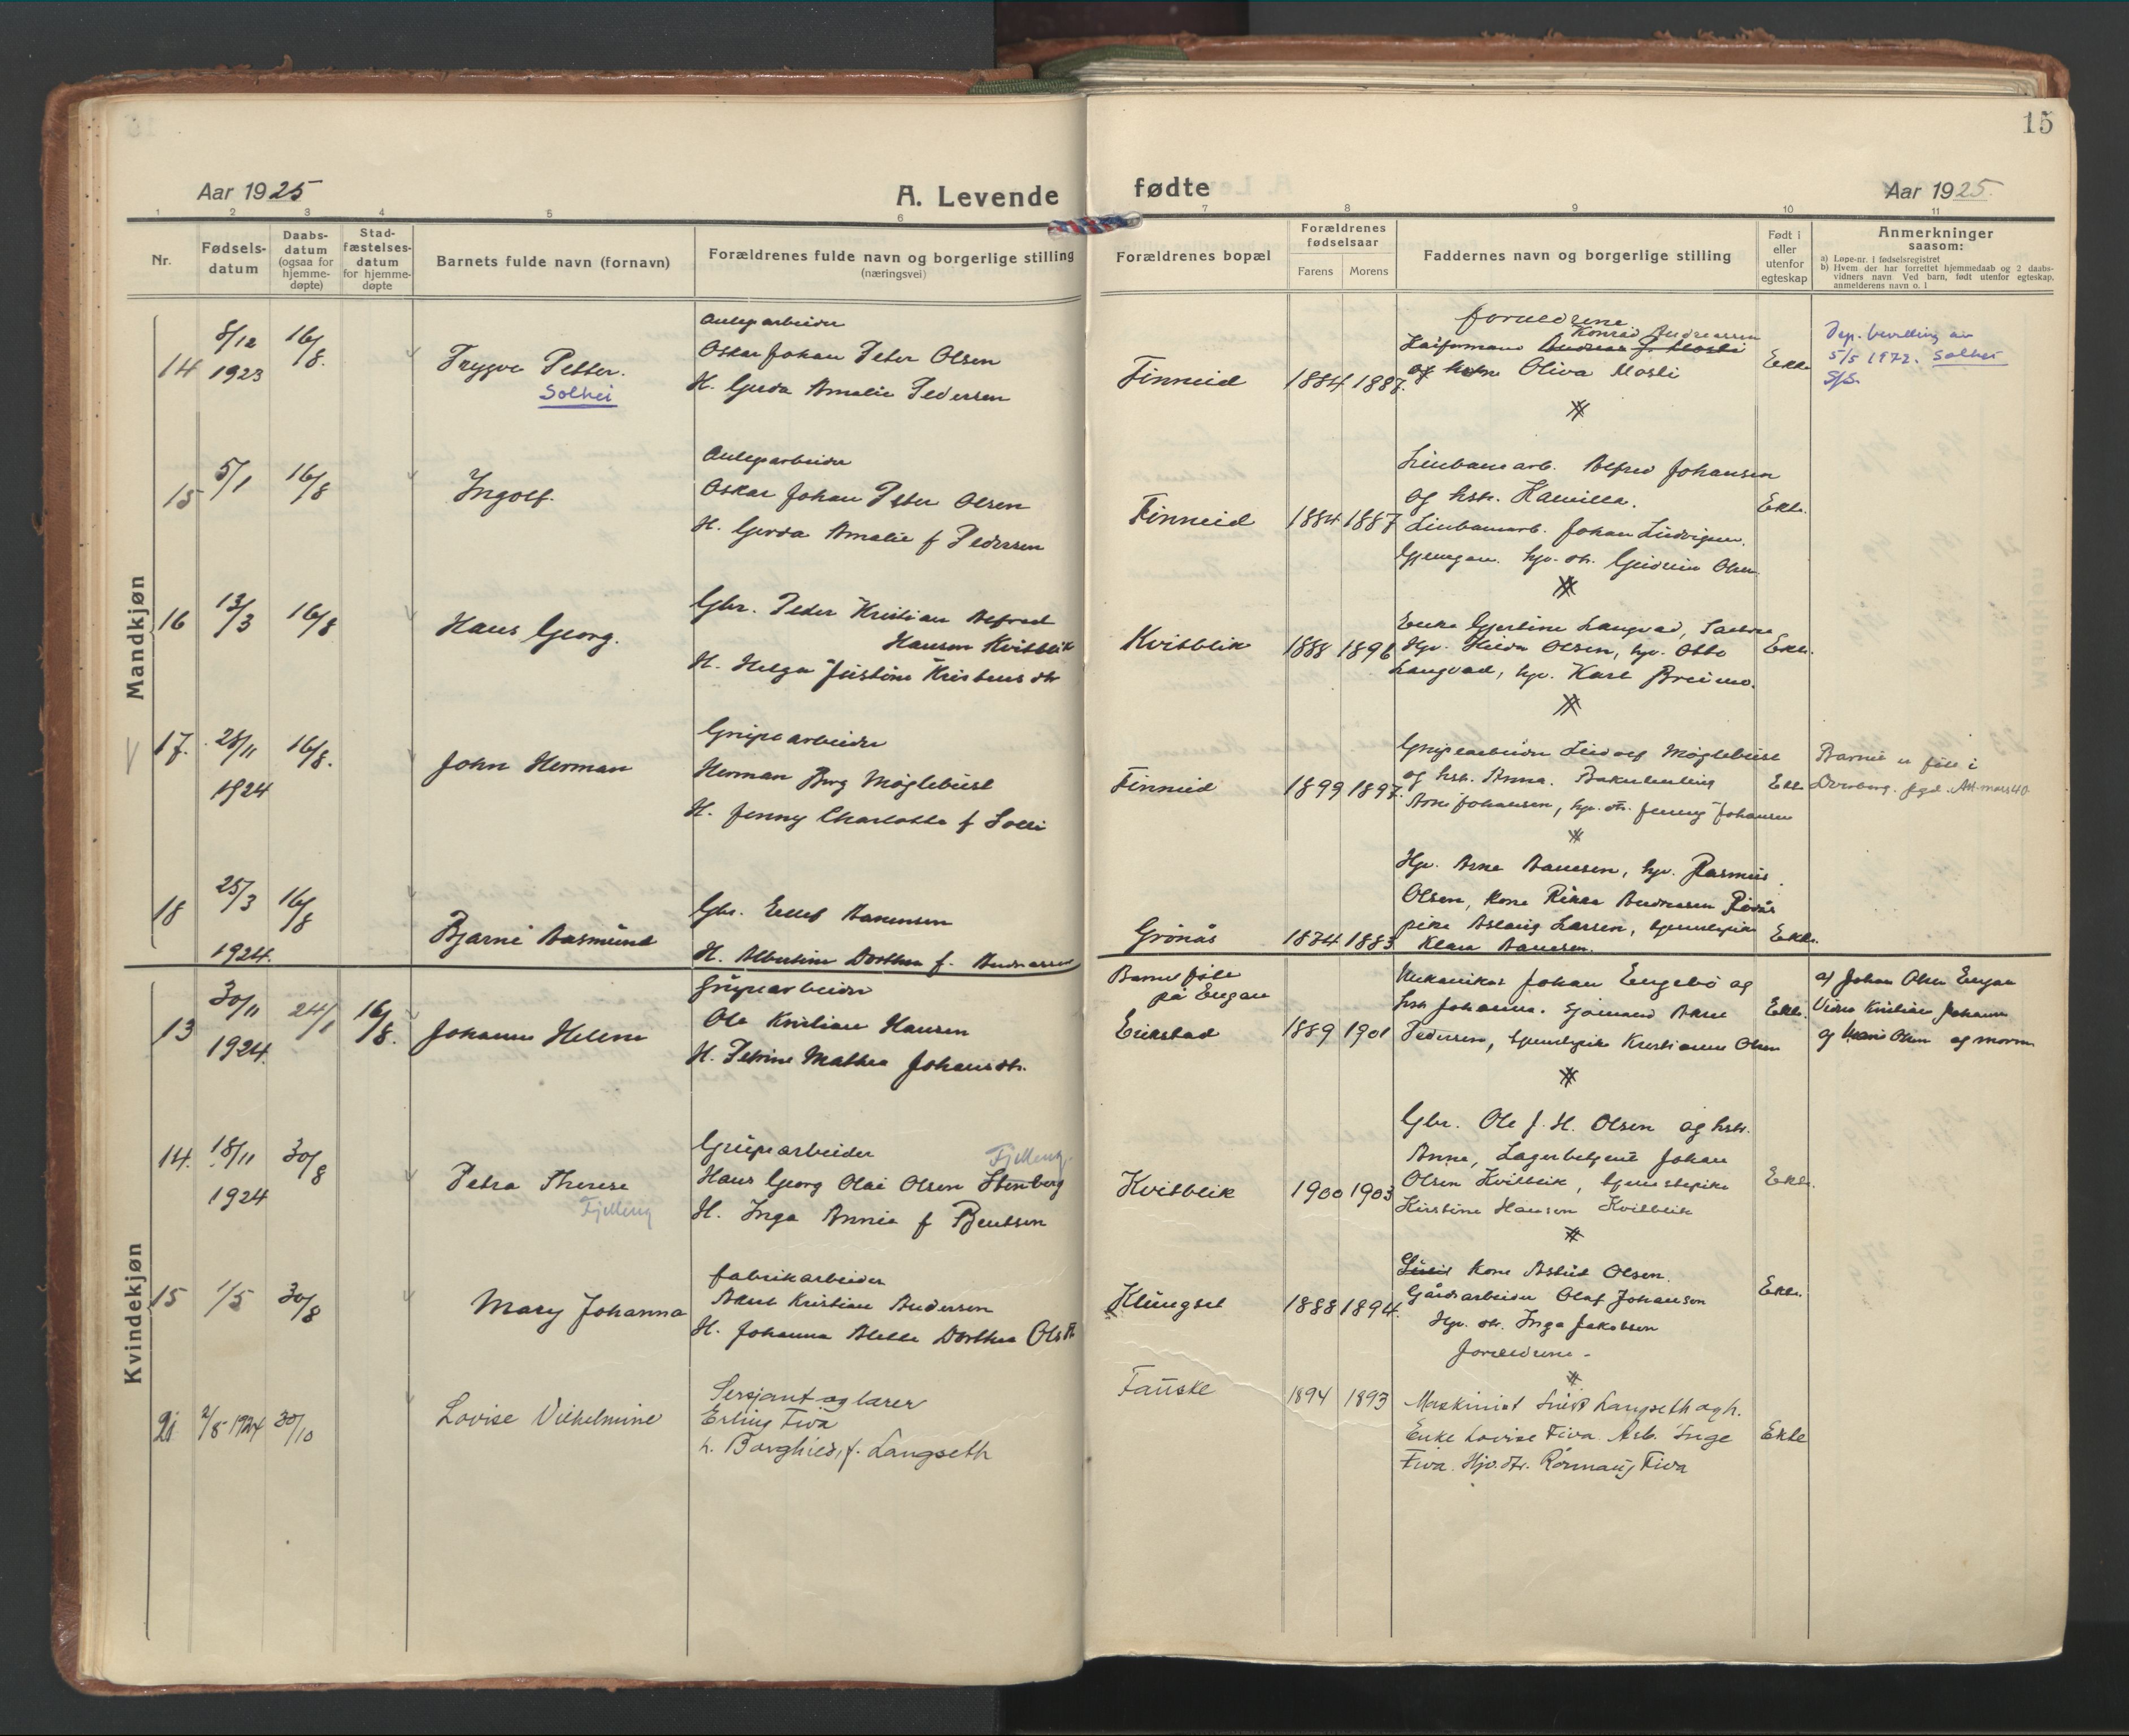 15
Aar 1925
A. Levende
fødte
Aar 1925.
1 2 3 4 5 6 7 8 9 10 11
Nr.
Fødsels-
datum
Daabs-
datum
(ogsaa for
hjemme-
døpte)
Stad-
fæstelses-
datum
for hjemme-
døpte
Barnets fulde navn (fornavn)
Forældrenes fulde navn og borgerlige stilling
(næringsvei)
Forældrenes bopæl
Forældrenes
fødselsaar
Farens Morens
Faddernes navn og borgerlige stilling
Født i
eller
utenfor
egteskap
Anmerkninger
saasom:
a) Løpe-nr. i fødselsregistret
b) Hvem der har forrettet hjemmedaab og 2 daabs-
vidners navn. Ved barn, født utenfor egteskap,
anmelderens navn o. l
Mandkjøn
14
8/12
1923
16/8.
Trygve Petter.
Solhei
Anlegsarbeider
Oskar Johan Peter Olsen
H. Gerda Amalie Pedersen
Finneid
1884 1887.
foreldrene
Konrad Andreassen
og hstr Oliva Mosli
Ekte
Dep. bevilling av
5/5 1972. Solhei
S/S.
15
5/1
16/8
Ingolf.
Anlegsarbeider
Oskar Johan Peter Olsen
H. Gerda Amalie f Pedersen
Finneid
1884 1887
Linbanearb. Alfred Johansen
og hstr. Kamilla.
Linbanearb. Johan Ludvigsen.
hjv. dtr. Gudrun Olsen
Ekte.
16
13/3
16/8
Hans Georg.
Gbr. Peder Kristian Alfred
Hansen Kvitblik
H. Helga Justine Kristensdtr
Kvitblik
1888 1896
Enke Gjertine Langvad,
Hjv. Hilda Olsen, hjv. Otto
Langvad, hjv. Karl Breimo.
Ekte.
17.
28/11
1924
16/8.
John Herman
Grubearbeider
Herman Borg Møglebust
H. Jenny Charlotte f Solli
Finneid
1899 1897.
Grubearbeider Ludolf Møglebust
og hstr. Anna.
Arne Johansen, hjv. dtr. Jenny Johansen
Ekte
Barnet er født i
Att. mars 40
18
25/3
1924.
16/8
Bjarne Aasmund
Gbr. Ellef Aanensen
H. Albertine Dorthea f. Andreassen
Grønås
1874 1883
Hjv. Arne Aanesen, hjv. Rasmus
Olsen, kone Rikka Andreassen Røvås
pike Aslaug Larsen, tjenestepike
Klara Aanesen.
Ekte.
Kvindekjøn
13
30/11
1924.
24/1
16/8.
Johanne Helene
Grubearbeider
Ole Kristian Hansen
H. Petrine Mathea Johansdtr.
Barnet født
på Engan
Erikstad
1889 1901
Mekaniker Johan Engebø og
hstr Johanna. Sjømand Arne
Pedersen, tjenestepike Kristianne Olsen
Ekte.
af Johan Olsen Engan
Vidner Kristian Johansen
og Marie Olsen og moren
14.
18/11
1924
30/8
Petra Therese
Fjelleng
Grubearbeider
Fjelleng.
Hans Georg Olai Olsen Stenberg
H. Inga Annie f Bentsen
Kvitblik
1900 1903
Gbr. Ole J. H. Olsen og hstr.
Anna, Lagerbetjent Johan
Olsen Kvitblik, tjenestepike
Kirstine Hansen Kvitblik
Ekte.
15
1/5
30/8
Mary Johanna
Fabrikarbeider
Aksel Kristian Andersen
H. Johanna Dorthea Olsdtr
Klungset
1888 1894.
Kone Astrid Olsen.
Gårdsarbeider Olaf Johansen
Hjv. dtr. Inga Jakobsen
foreldrene -
Ekte.
21
2/8 1924
30/10
Lovise Vilhelmine
Sersjant og lærer
Erling Tiva
h. Borghild, f. Langseth
Fauske
1894 1893
Maskinist Langseth og h.
Enke Lovise Tiva. Arb. Inge
Tiva. Hjv. dtr. Rønnaug Tiva
Ekte